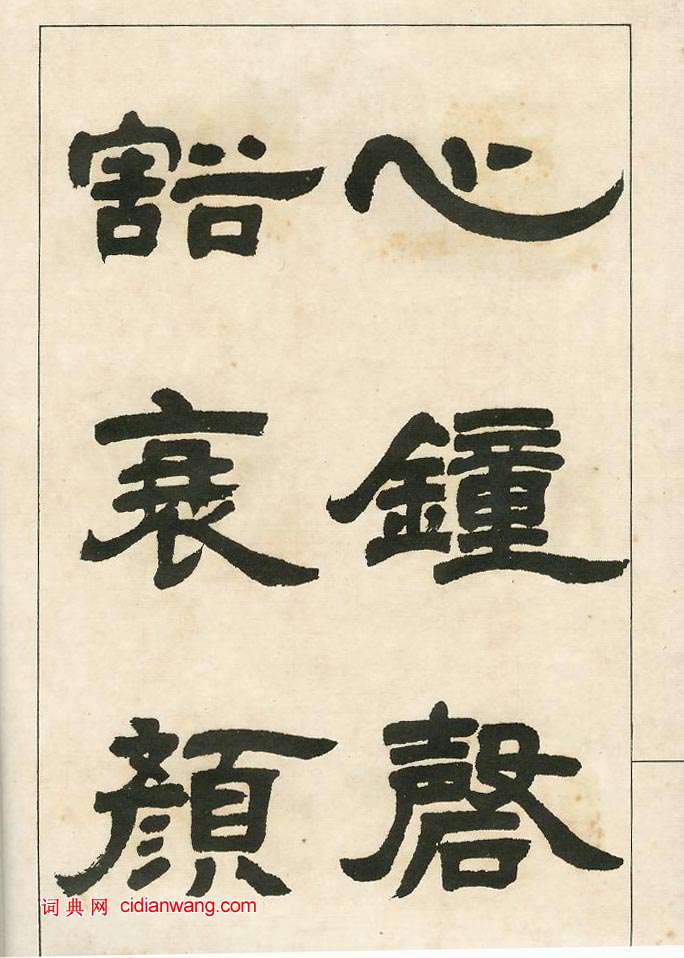 心鐘磬
豁衰顏
词典网 cidianwang.com